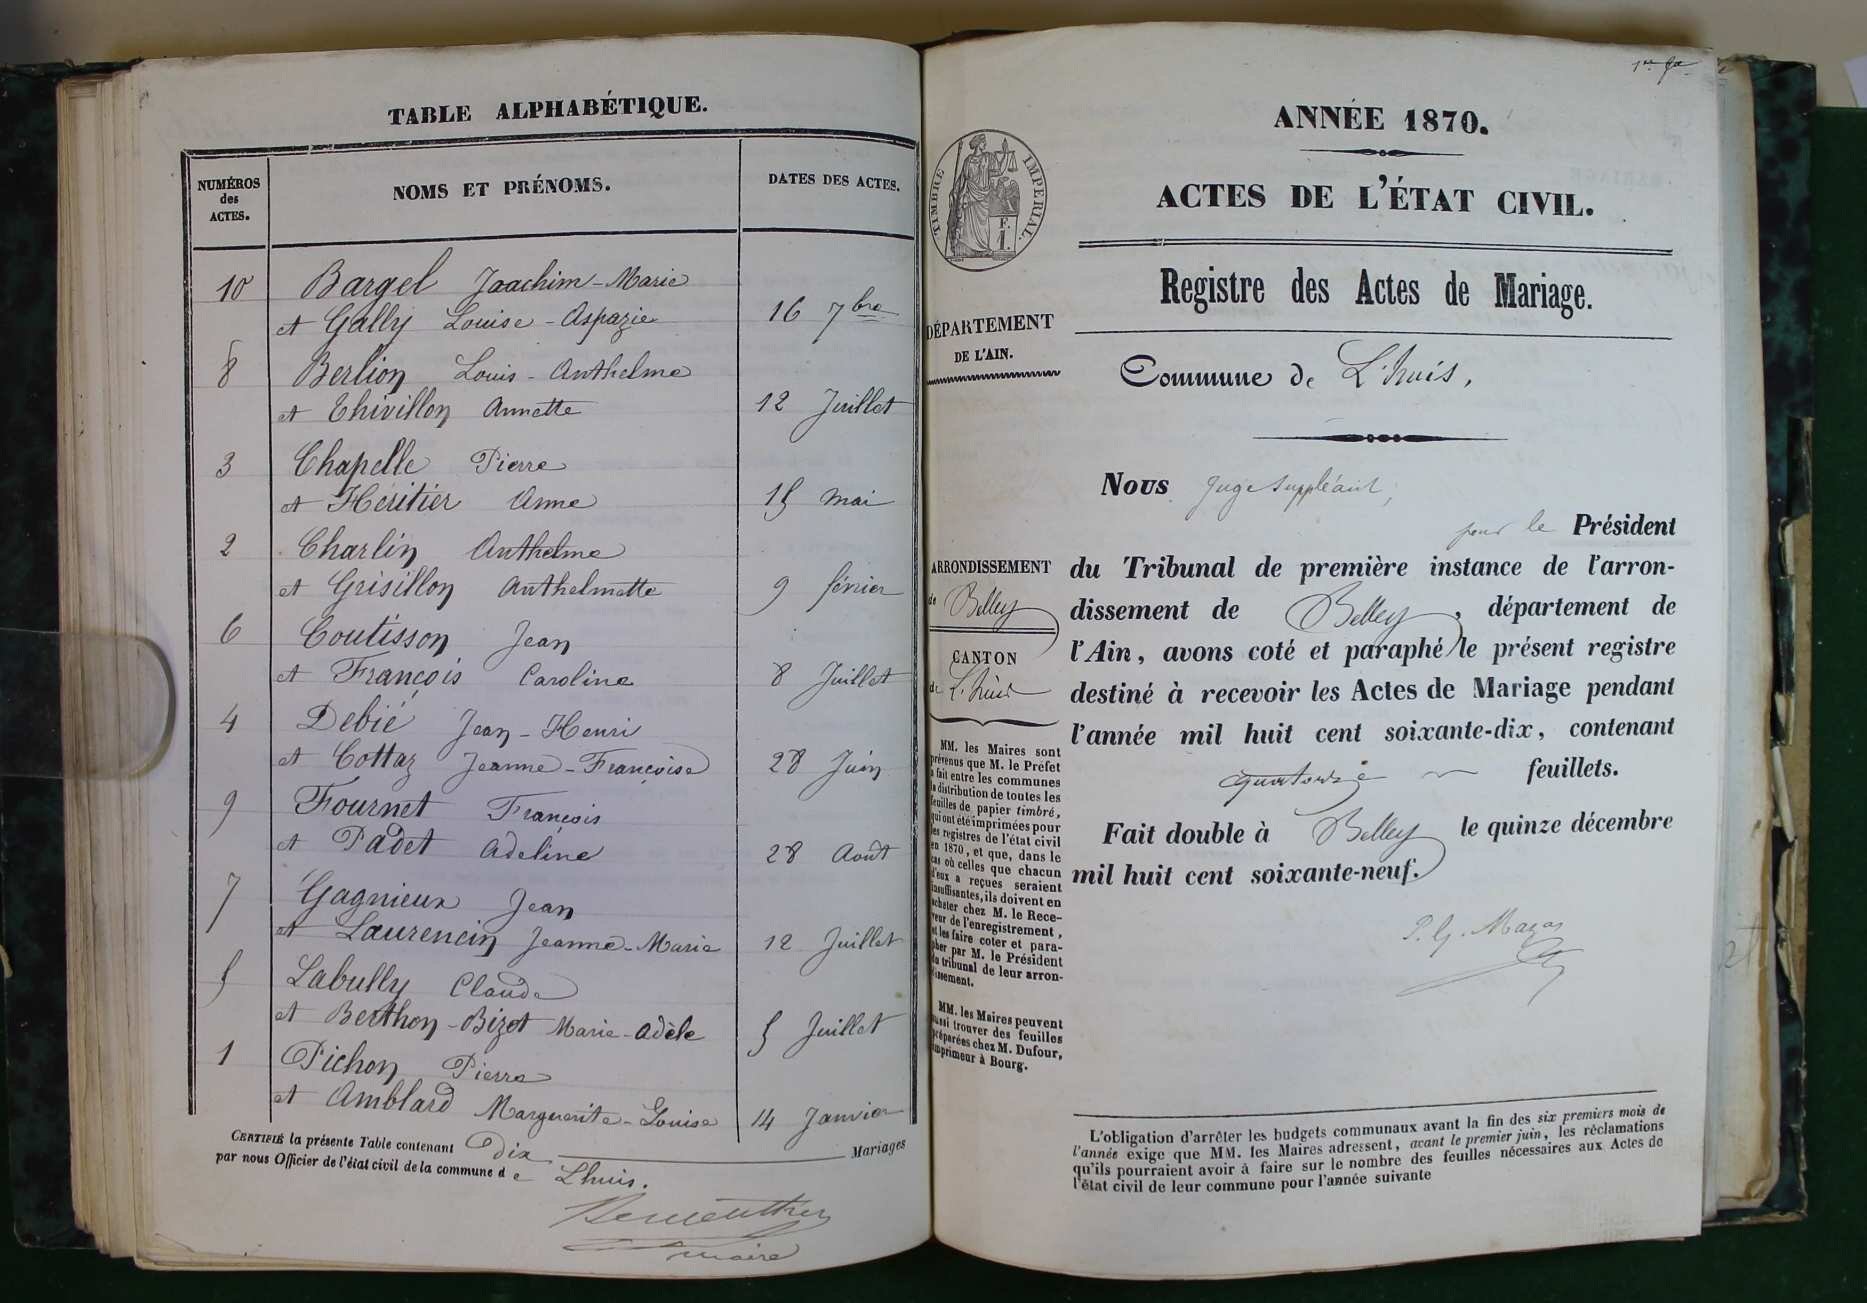 TABLE ALPHABÉTIQUE.
NUMÉROS
des
ACTES.
NOMS ET PRÉNOMS.
DATES DES ACTES.
10 Bargel Joachim-Marie
et Gally Louise-Aspazie 16 7bre
8 Berlion Louis-Anthelme
et Thivillon Annette 12 Juillet
3 Chapelle Pierre
et Héritier Anne 15 mai
2 Charlin Anthelme
et Grisillon Anthelmette 9 février
6 Coutisson Jean
et François Caroline 8 Juillet
4 Debié Jean-Henri
et Cottaz Jeanne-Françoise 28 Juin
9 Fournet François
et Padet Adeline 28 Août
7 Gagnieux Jean
et Laurencin Jeanne-Marie 12 Juillet
5 Labully Claude
et Berthon-Bizot Marie-Adèle 5 Juillet
1 Pichon Pierre
et Amblard Marguerite-Louise 14 Janvier
CERTIFIÉ la présente Table contenant Dix Mariages
par nous Officier de l'état civil de la commune de Lhuis.
maire
ANNÉE 1870.
ACTES DE L'ÉTAT CIVIL.
TIMBRE IMPÉRIAL.
F.
1.
Registre des Actes de Mariage.
DÉPARTEMENT
DE L'AIN.
Commune de L'huis,
Nous Juge suppléant,
pour le Président
du Tribunal de première instance de l'arron-
dissement de Belley, département de
l'Ain, avons coté et paraphé le présent registre
destiné à recevoir les Actes de Mariage pendant
l'année mil huit cent soixante-dix, contenant
quatorze feuillets.
Fait double à Belley le quinze décembre
mil huit cent soixante-neuf.
ARRONDISSEMENT
de Belley
CANTON
de L'huis
MM. les Maires sont
prévenus que M. le Préfet
a fait entre les communes
la distribution de toutes les
feuilles de papier timbré,
qui ont été imprimées pour
les registres de l'état civil
en 1870, et que, dans le
cas où celles que chacun
d'eux a reçues seraient
insuffisantes, ils doivent en
acheter chez M. le Rece-
veur de l'enregistrement,
et les faire coter et para-
pher par M. le Président
du tribunal de leur arron-
dissement.
MM. les Maires peuvent
aussi trouver des feuilles
préparées chez M. Dufour,
imprimeur à Bourg.
L'obligation d'arrêter les budgets communaux avant la fin des six premiers mois de
l'année exige que MM. les Maires adressent, avant le premier juin, les réclamations
qu'ils pourraient avoir à faire sur le nombre des feuilles nécessaires aux Actes de
l'état civil de leur commune pour l'année suivante